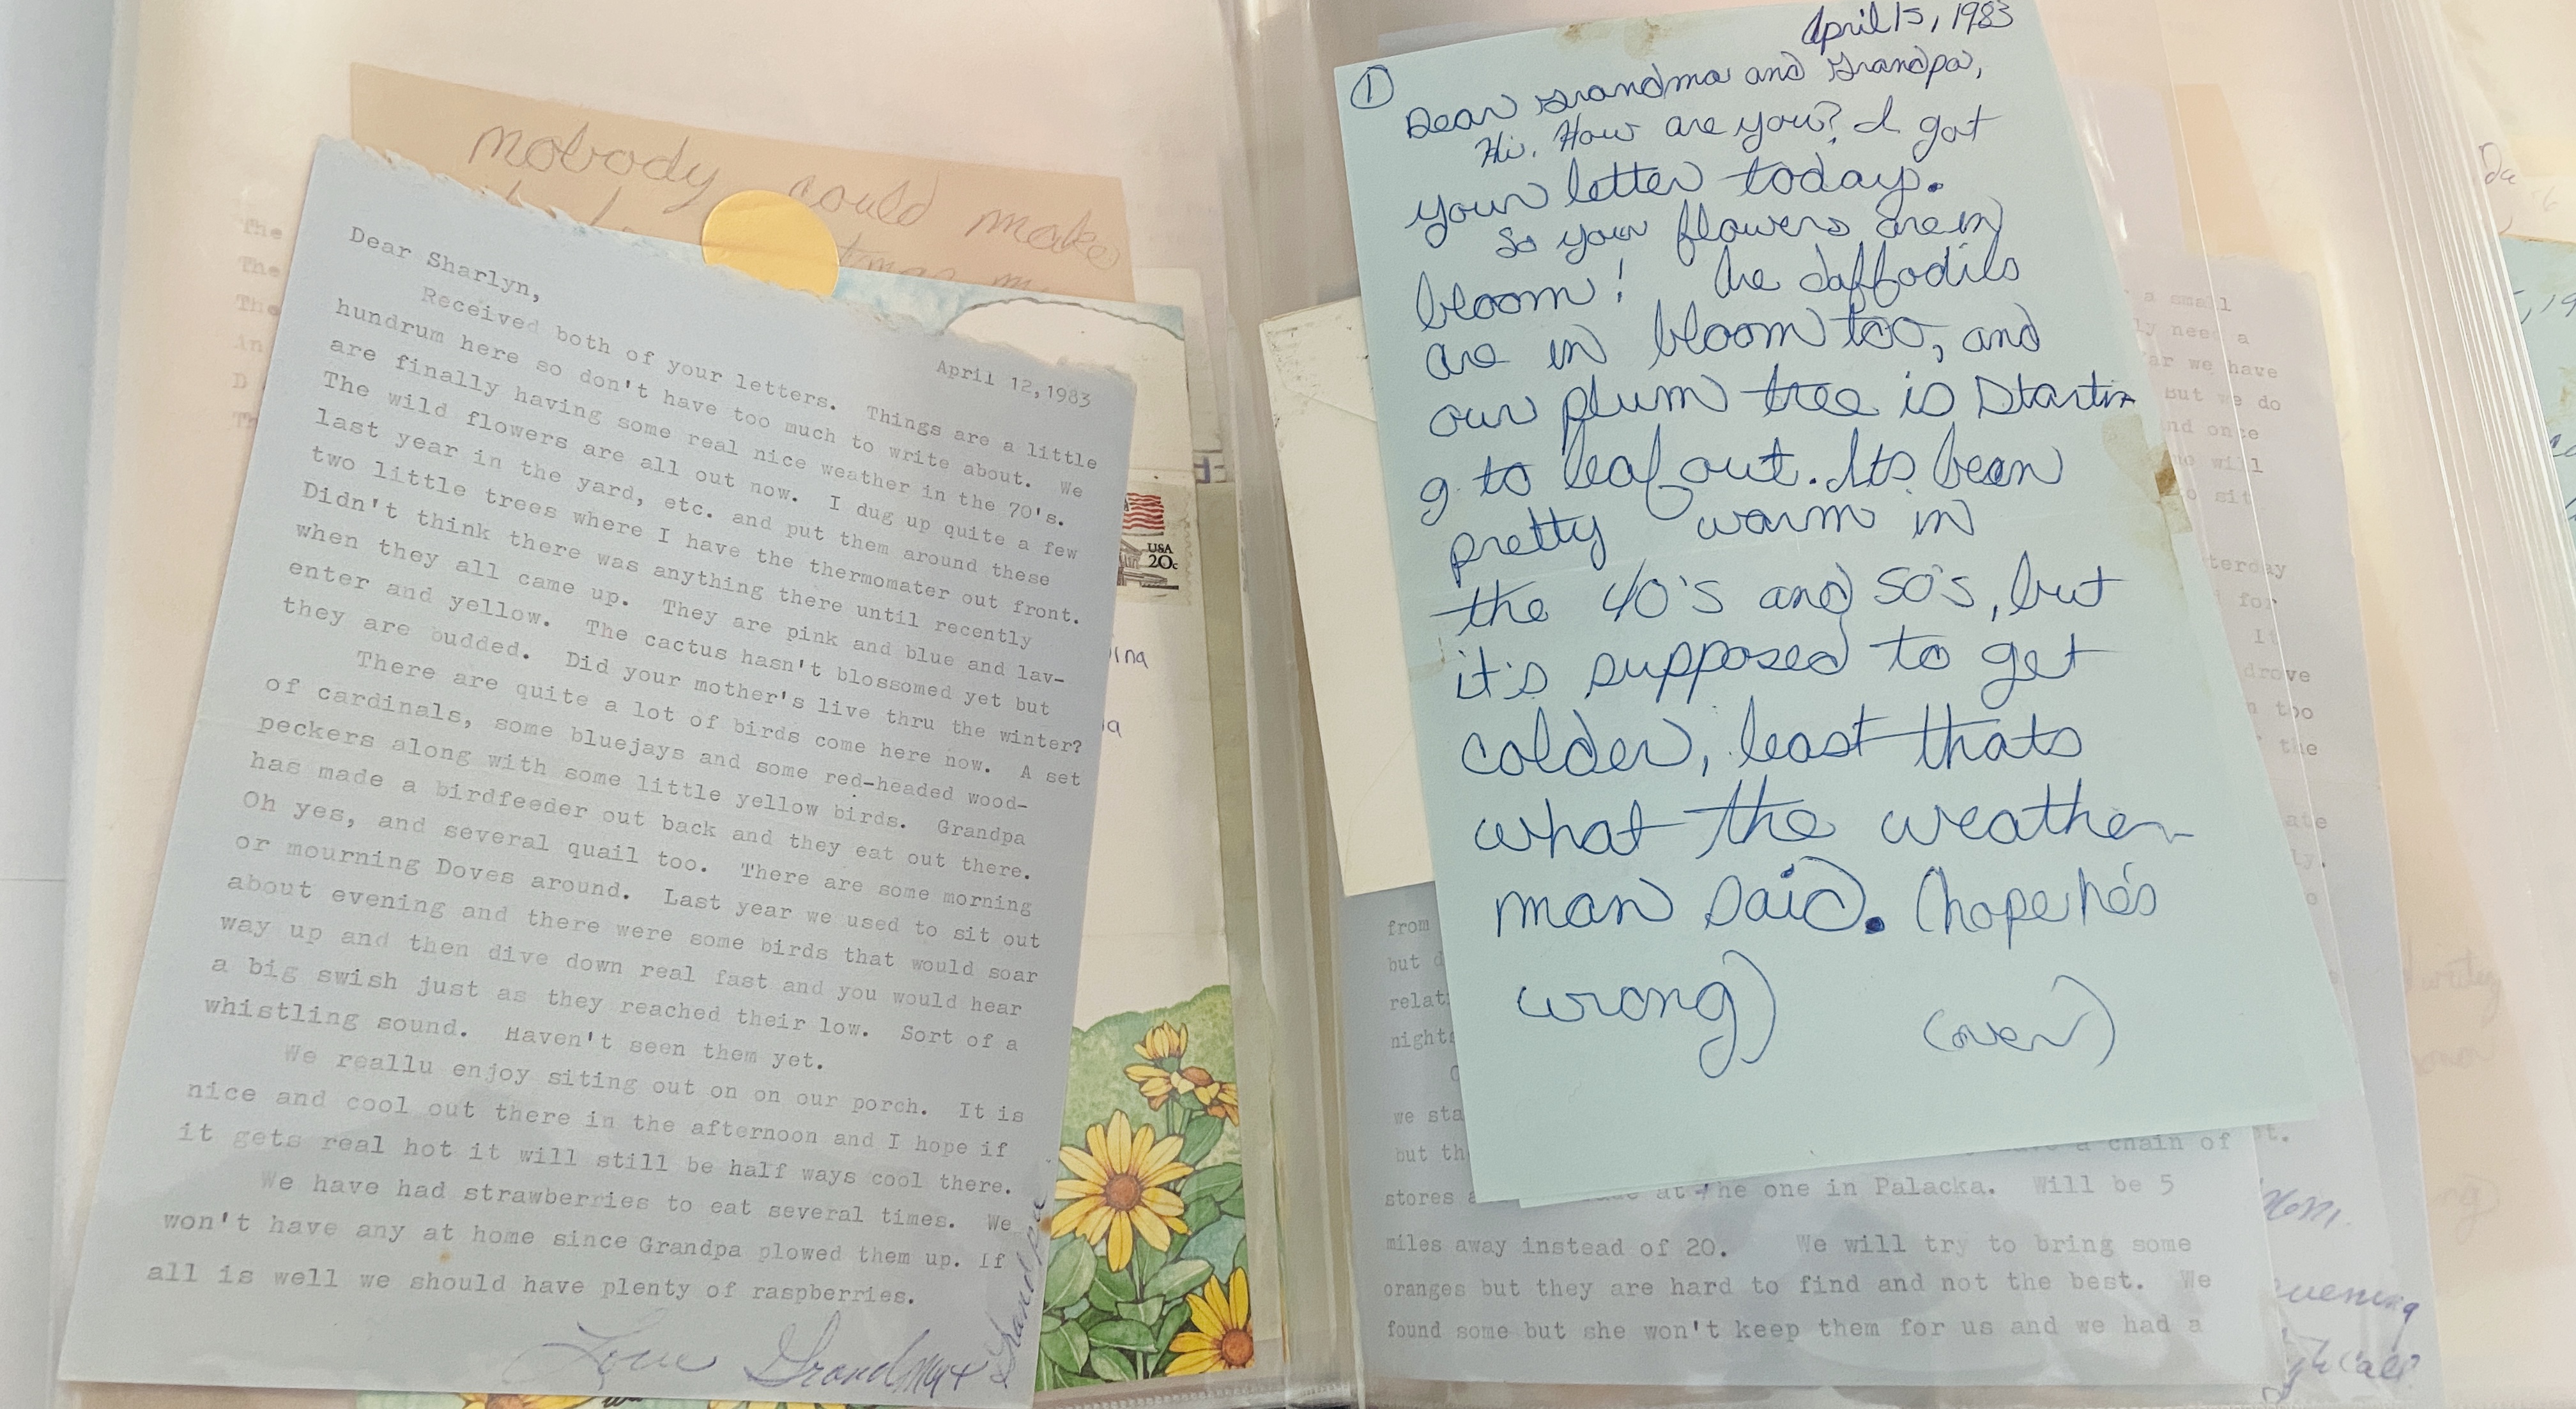 nobody could make
Dear Sharlyn,
April 12,1983
Received both of your letters. Things are a little
hundrum here so don't have too much to write about. We
are finally having some real nice weather in the 70's.
The wild flowers are all out now. I dug up quite a few
last year in the yard, etc. and put them around these
two little trees where I have the thermomater out front.
Didn't think there was anything there until recently
when they all came up. They are pink and blue and lav-
enter and yellow. The cactus hasn't blossomed yet but
they are budded. Did your mother's live thru the winter?
There are quite a lot of birds come here now. A set
of cardinals, some bluejays and some red-headed wood-
peckers along with some little yellow birds. Grandpa
has made a birdfeeder out back and they eat out there.
Oh yes, and several quail too. There are some morning
or mourning Doves around. Last year we used to sit out
about evening and there were some birds that would soar
way up and then dive down real fast and you would hear
a big swish just as they reached their low. Sort of a
whistling sound. Haven't seen them yet.
We reallu enjoy siting out on on our porch. It is
nice and cool out there in the afternoon and I hope if
it gets real hot it will still be half ways cool there.
We have had strawberries to eat several times. We
won't have any at home since Grandpa plowed them up. If
all is well we should have plenty of raspberries.
Love Grandma + Grandpa
USA
20c
April 15, 1983
1
Dear Grandma and Grandpa,
Hi. How are you? I got
your letter today.
So your flowers are in
bloom! The daffodils
are in bloom too, and
our plum tree is startin
g to leaf out. Its been
pretty warm in
the 40's and 50's, but
it's supposed to get
colder, least thats
what the weather
man said. (hope he's
wrong)
(over)
a small
ly need a
we have
But we do
nd once
will
sit
terday
for
It
drove
too
the
from
but
nights
we sta
but th
a chain of
stores
at the one in Palacka. Will be 5
miles away instead of 20. We will try to bring some
oranges but they are hard to find and not the best. We
found some but she won't keep them for us and we had a
Mom.
evening